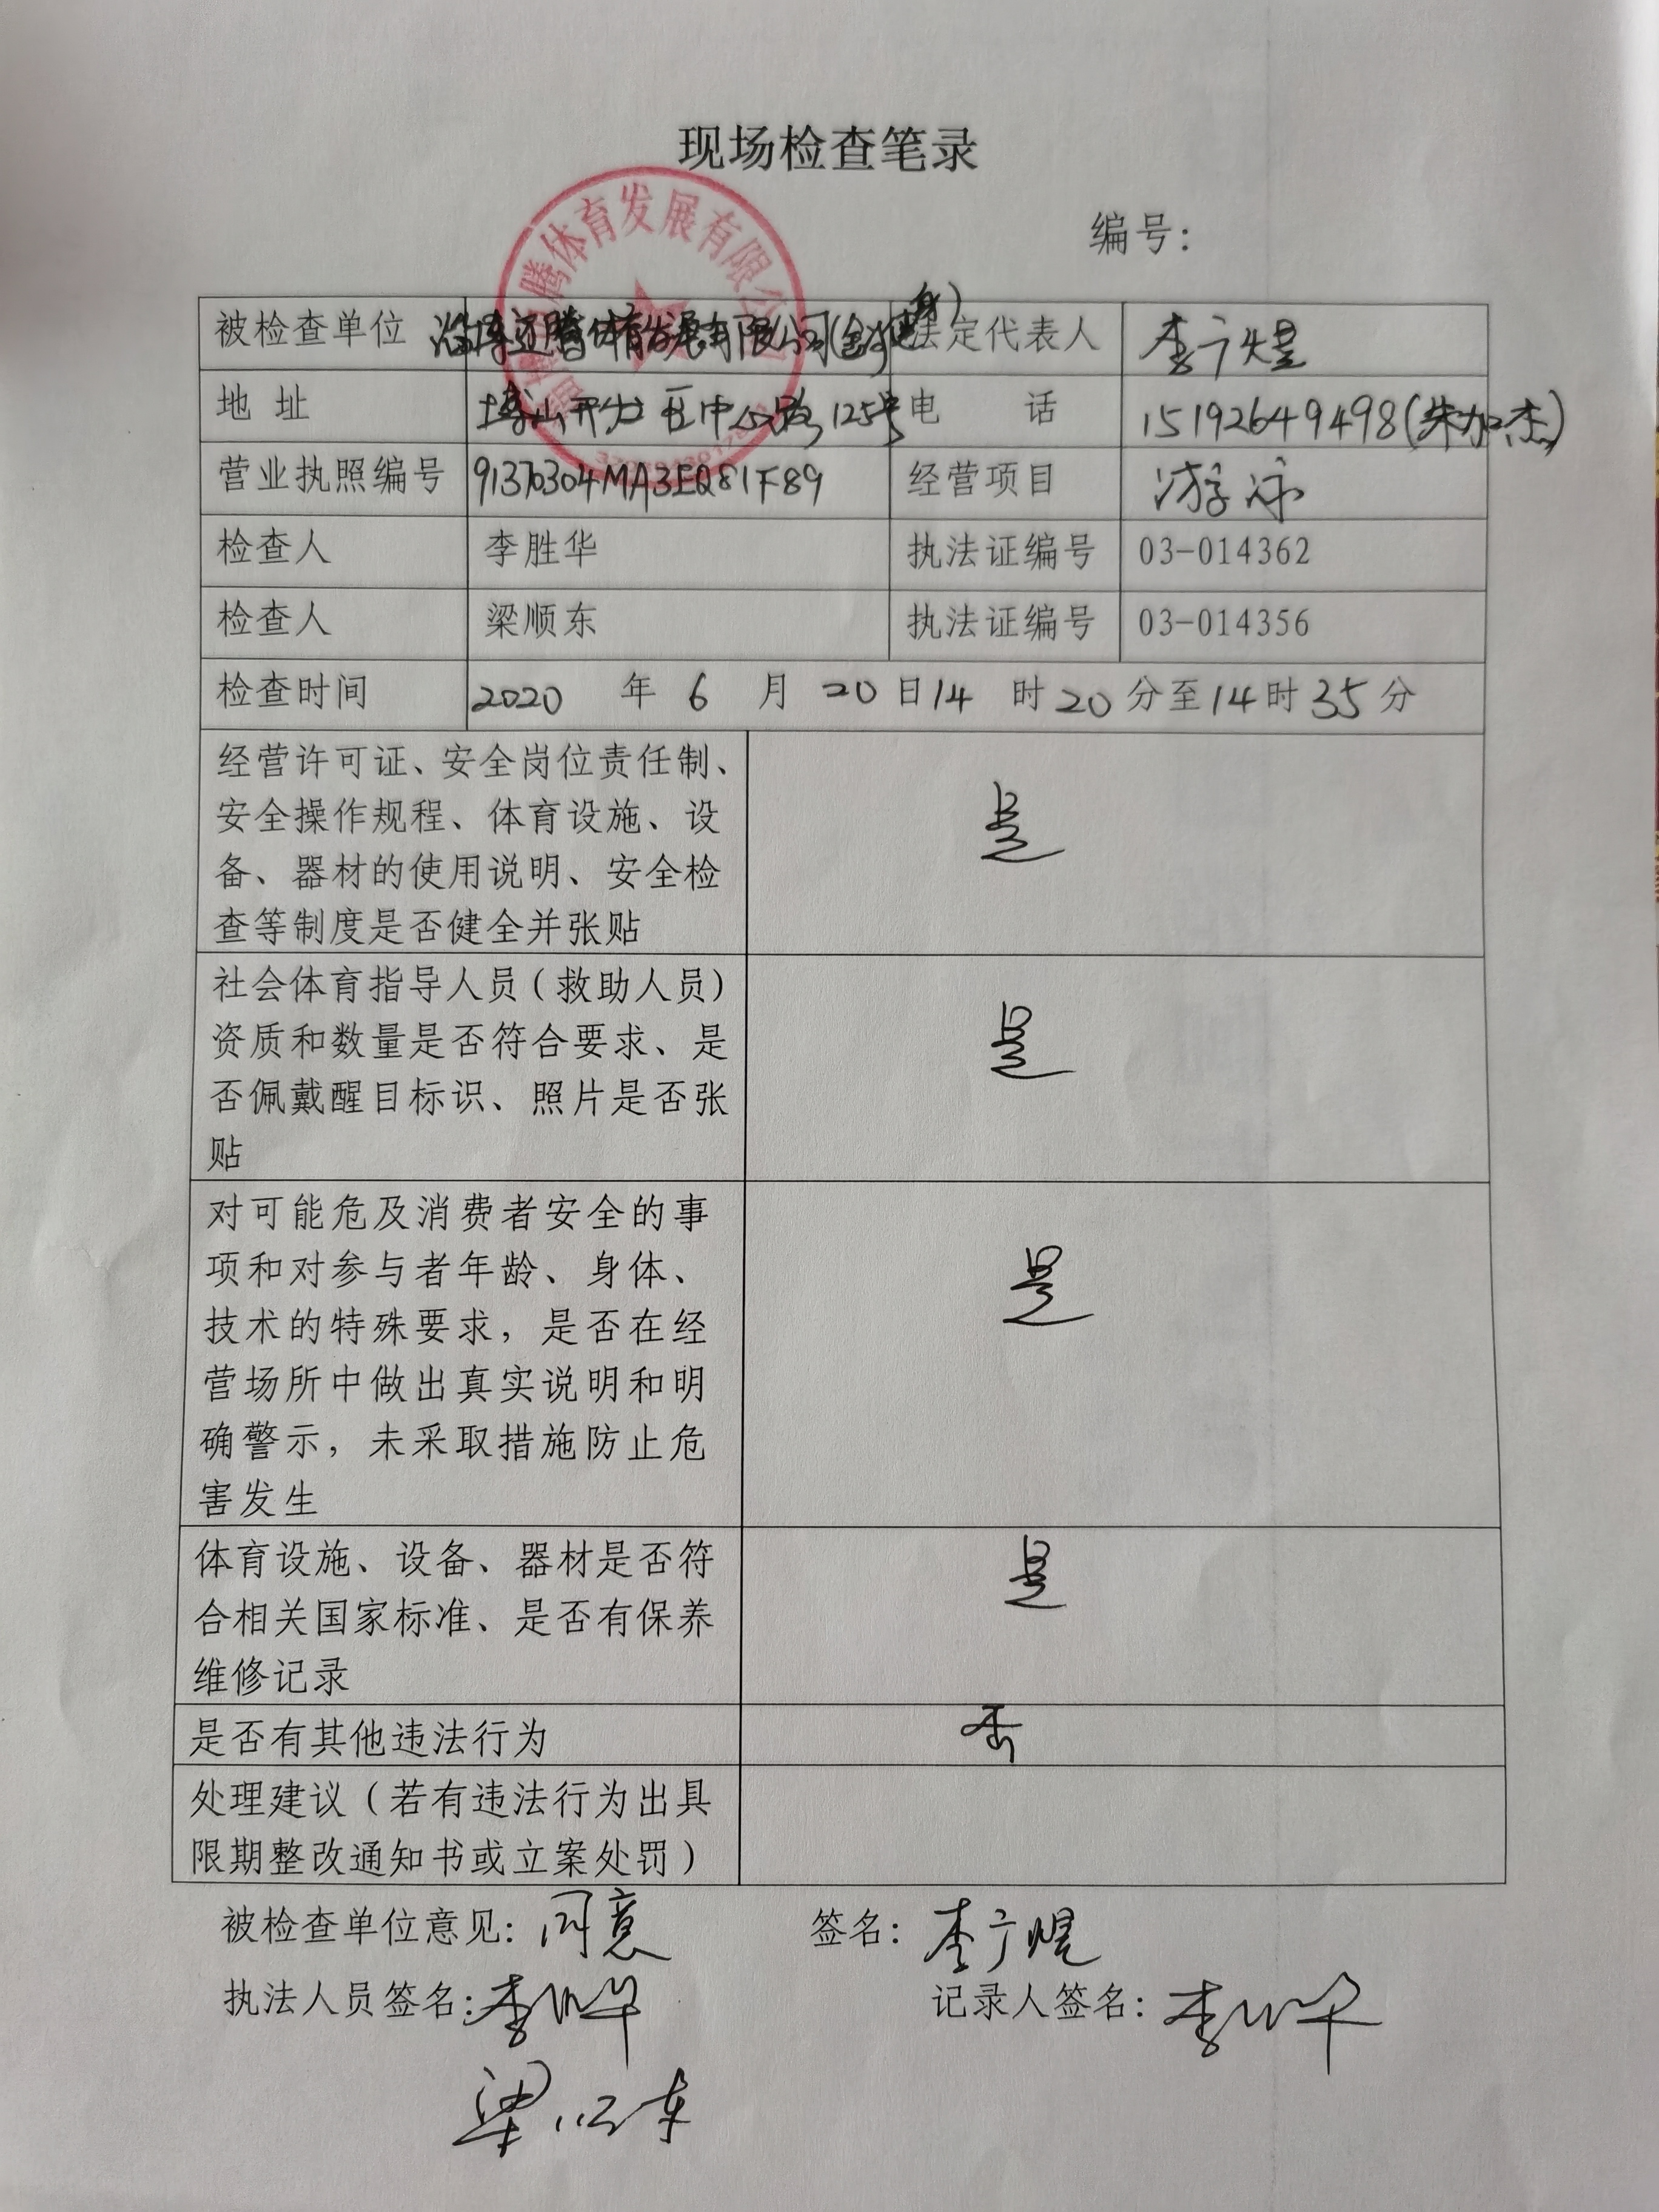 现场检查笔录
编号：
腾体育发展有限公
被检查单位 淄博迈腾体育发展有限公司(健身) 法定代表人 李广煜
地 址 博山开发区中心路125号 电 话 15192649498(朱加杰)
营业执照编号 91370304MA3EQ81F89 经营项目 游泳
检查人 李胜华 执法证编号 03-014362
检查人 梁顺东 执法证编号 03-014356
检查时间 2020 年 6 月 20 日 14 时 20 分至 14 时 35 分
经营许可证、安全岗位责任制、
安全操作规程、体育设施、设
备、器材的使用说明、安全检
查等制度是否健全并张贴
是
社会体育指导人员（救助人员）
资质和数量是否符合要求、是
否佩戴醒目标识、照片是否张
贴
是
对可能危及消费者安全的事
项和对参与者年龄、身体、
技术的特殊要求，是否在经
营场所中做出真实说明和明
确警示，未采取措施防止危
害发生
是
体育设施、设备、器材是否符
合相关国家标准、是否有保养
维修记录
是
是否有其他违法行为 否
处理建议（若有违法行为出具
限期整改通知书或立案处罚）
被检查单位意见：同意 签名：李广煜
执法人员签名：李胜华 记录人签名：李胜华
梁顺东